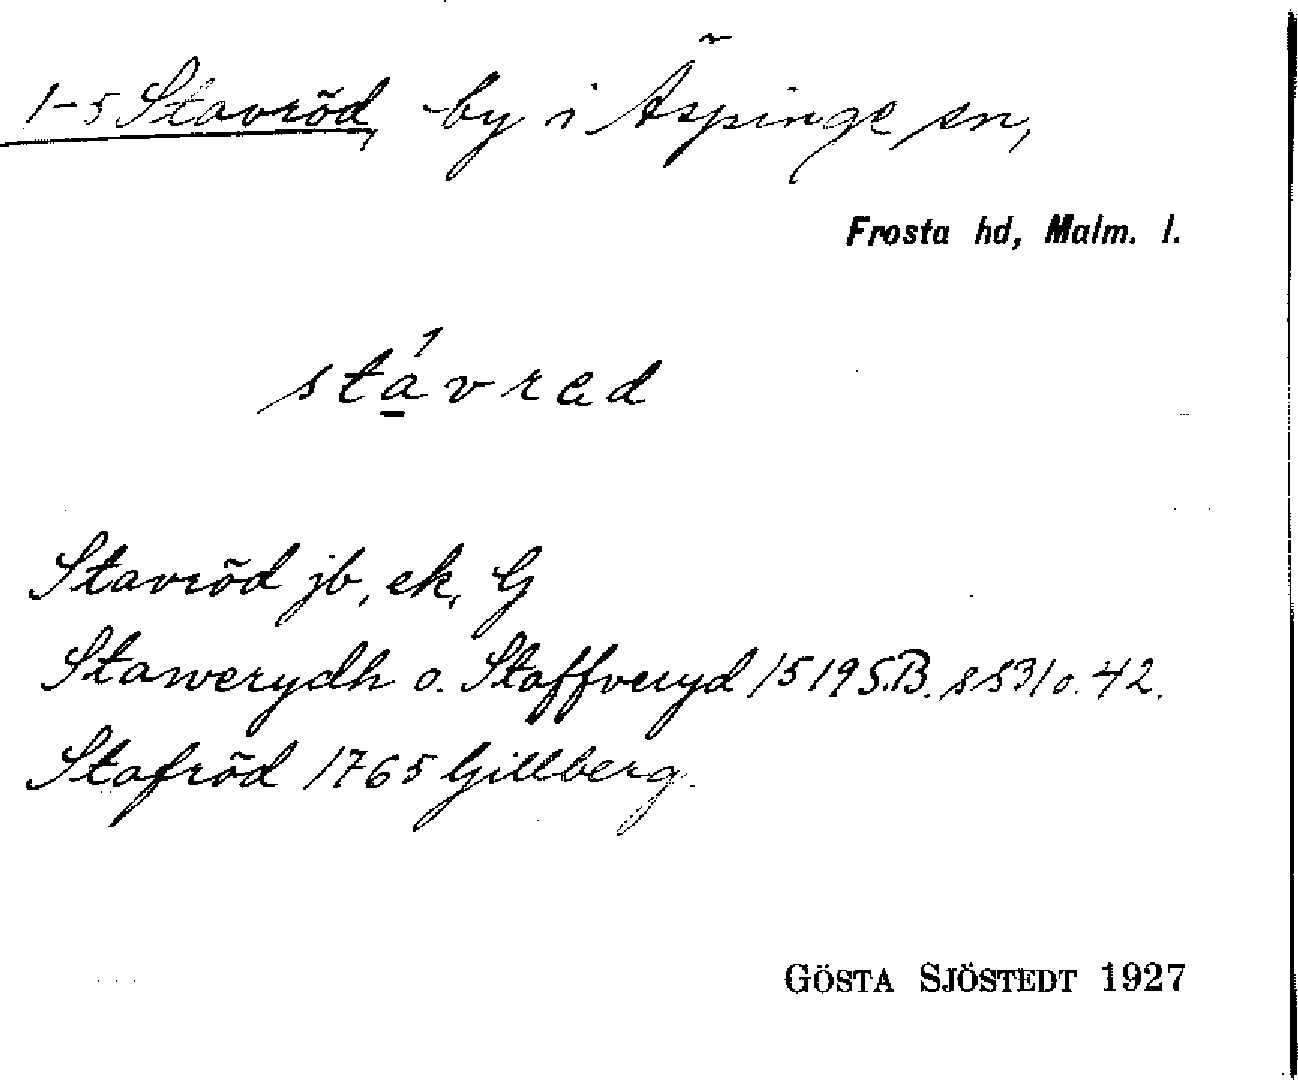 1-5 Stavröd, by i Äspinge sn,
Frosta hd, Malm. l.
stávrad
Stavröd jb, ek, G
Stawerydh o. Staffveryd 1519 S.B. s 531 o. 42.
Stafröd 1765 Gillberg.
GÖSTA SJÖSTEDT 1927